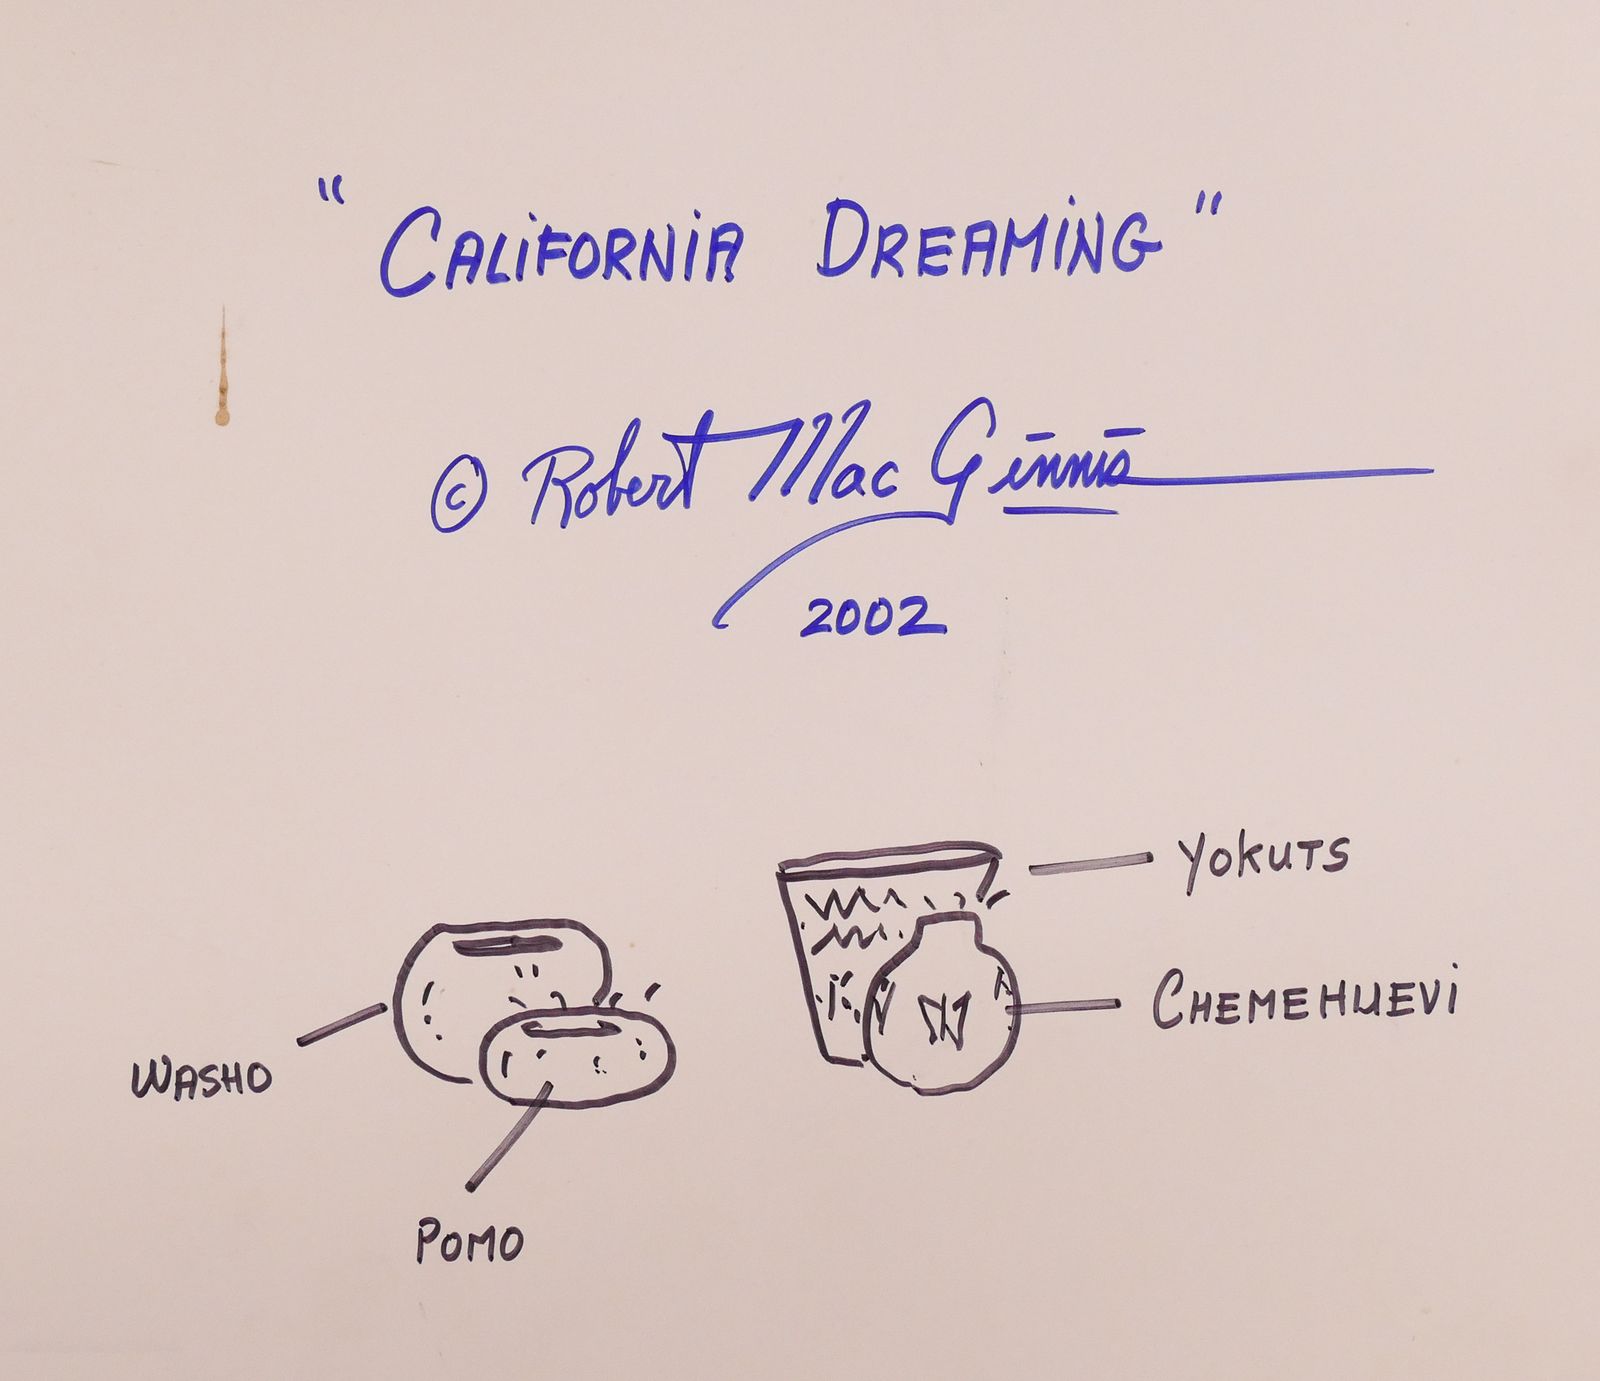 "CALIFORNIA DREAMING"
© Robert Mac Ginnis
2002
YOKUTS
CHEMEHUEVI
WASHO
POMO